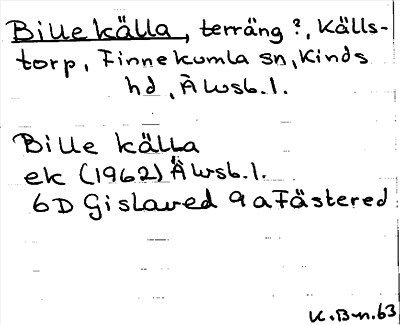 Bille källa, terräng?, Källs-
torp, Finnekumla sn, Kinds
hd, Älvsb.l.
Bille källa
ek (1962) Älvsb.l.
6D Gislaved 9a Fästered
K.B-n.63